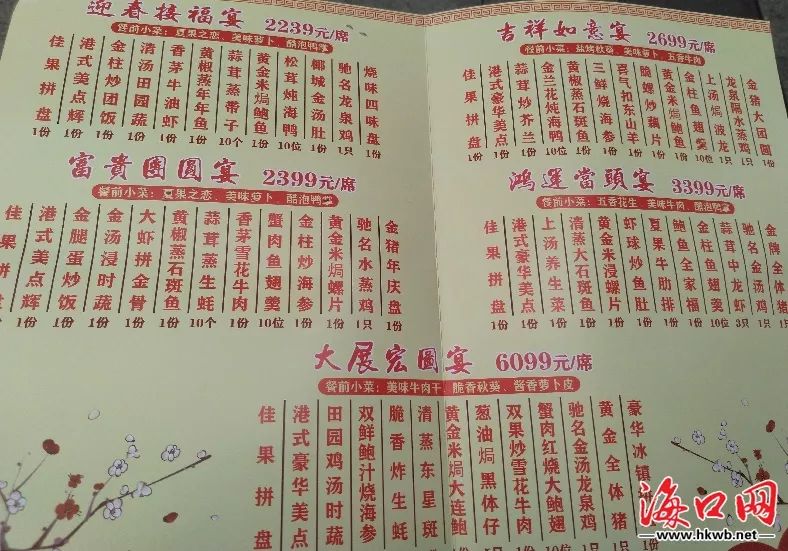 迎春接福宴 2239元/席
餐前小菜：夏果之恋、美味萝卜、酷泡鸭掌
烧味四味盘 1份
驰名龙泉鸡 1只
椰城金汤肚 1份
松茸炖海鸭 10位
黄金米焗鲍鱼 1份
蒜茸蒸带子 10个
黄椒蒸年年鱼 1份
香茅牛油虾 1份
清汤田园蔬 1份
金柱炒团饭 1份
港式美点辉 1份
佳果拼盘 1份
富貴團圓宴 2399元/席
餐前小菜：夏果之恋、美味萝卜、酷泡鸭掌
金猪年庆盘 1份
驰名水蒸鸡 1只
黄金米焗螺片 1份
金柱炒海参 1份
蟹肉鱼翅羹 10位
香茅雪花牛肉 1份
蒜茸蒸生蚝 10个
黄椒蒸石斑鱼 1份
大虾拼金骨 1份
金汤浸时蔬 1份
金腿蛋炒饭 1份
港式美点辉 1份
佳果拼盘 1份
吉祥如意宴 2699元/席
餐前小菜：盐烤秋葵、美味萝卜、五香牛肉
金猪大团圆 1份
龙泉隔水蒸鸡 1只
上汤焗波龙 1份
金柱鱼翅羹 10位
黄金米焗鲍鱼 1份
脆螺炒藕片 1份
喜气扣东山羊 1份
三鲜烧海参 1份
黄椒蒸石斑鱼 1份
金兰花炖海鸭 10位
蒜茸炒芥兰 1份
港式豪华美点 1份
佳果拼盘 1份
鸿運當頭宴 3399元/席
餐前小菜：五香花生、美味牛肉、酷泡鸭掌
金牌全体猪 1份
驰名金汤鸡 1只
蒜茸中龙虾 3只
金柱鱼翅羹 10位
鲍鱼全家福 1份
夏果牛肋排 1份
虾球炒鱼肚 1份
黄金米浸螺片 1份
清蒸大石斑鱼 1份
上汤养生菜 1份
港式豪华美点 1份
佳果拼盘 1份
大展宏圖宴 6099元/席
餐前小菜：美味牛肉干、脆香秋葵、酱香萝卜皮
豪华冰镇
黄金全体猪
驰名金汤龙泉鸡
蟹肉红烧大鲍翅
双果炒雪花牛肉
葱油焗黑体仔
黄金米焗大连鲍
清蒸东星斑
脆香炸生蚝
双鲜鲍汁烧海参
田园鸡汤时蔬
港式豪华美点
佳果拼盘
海口网
www.hkwb.net